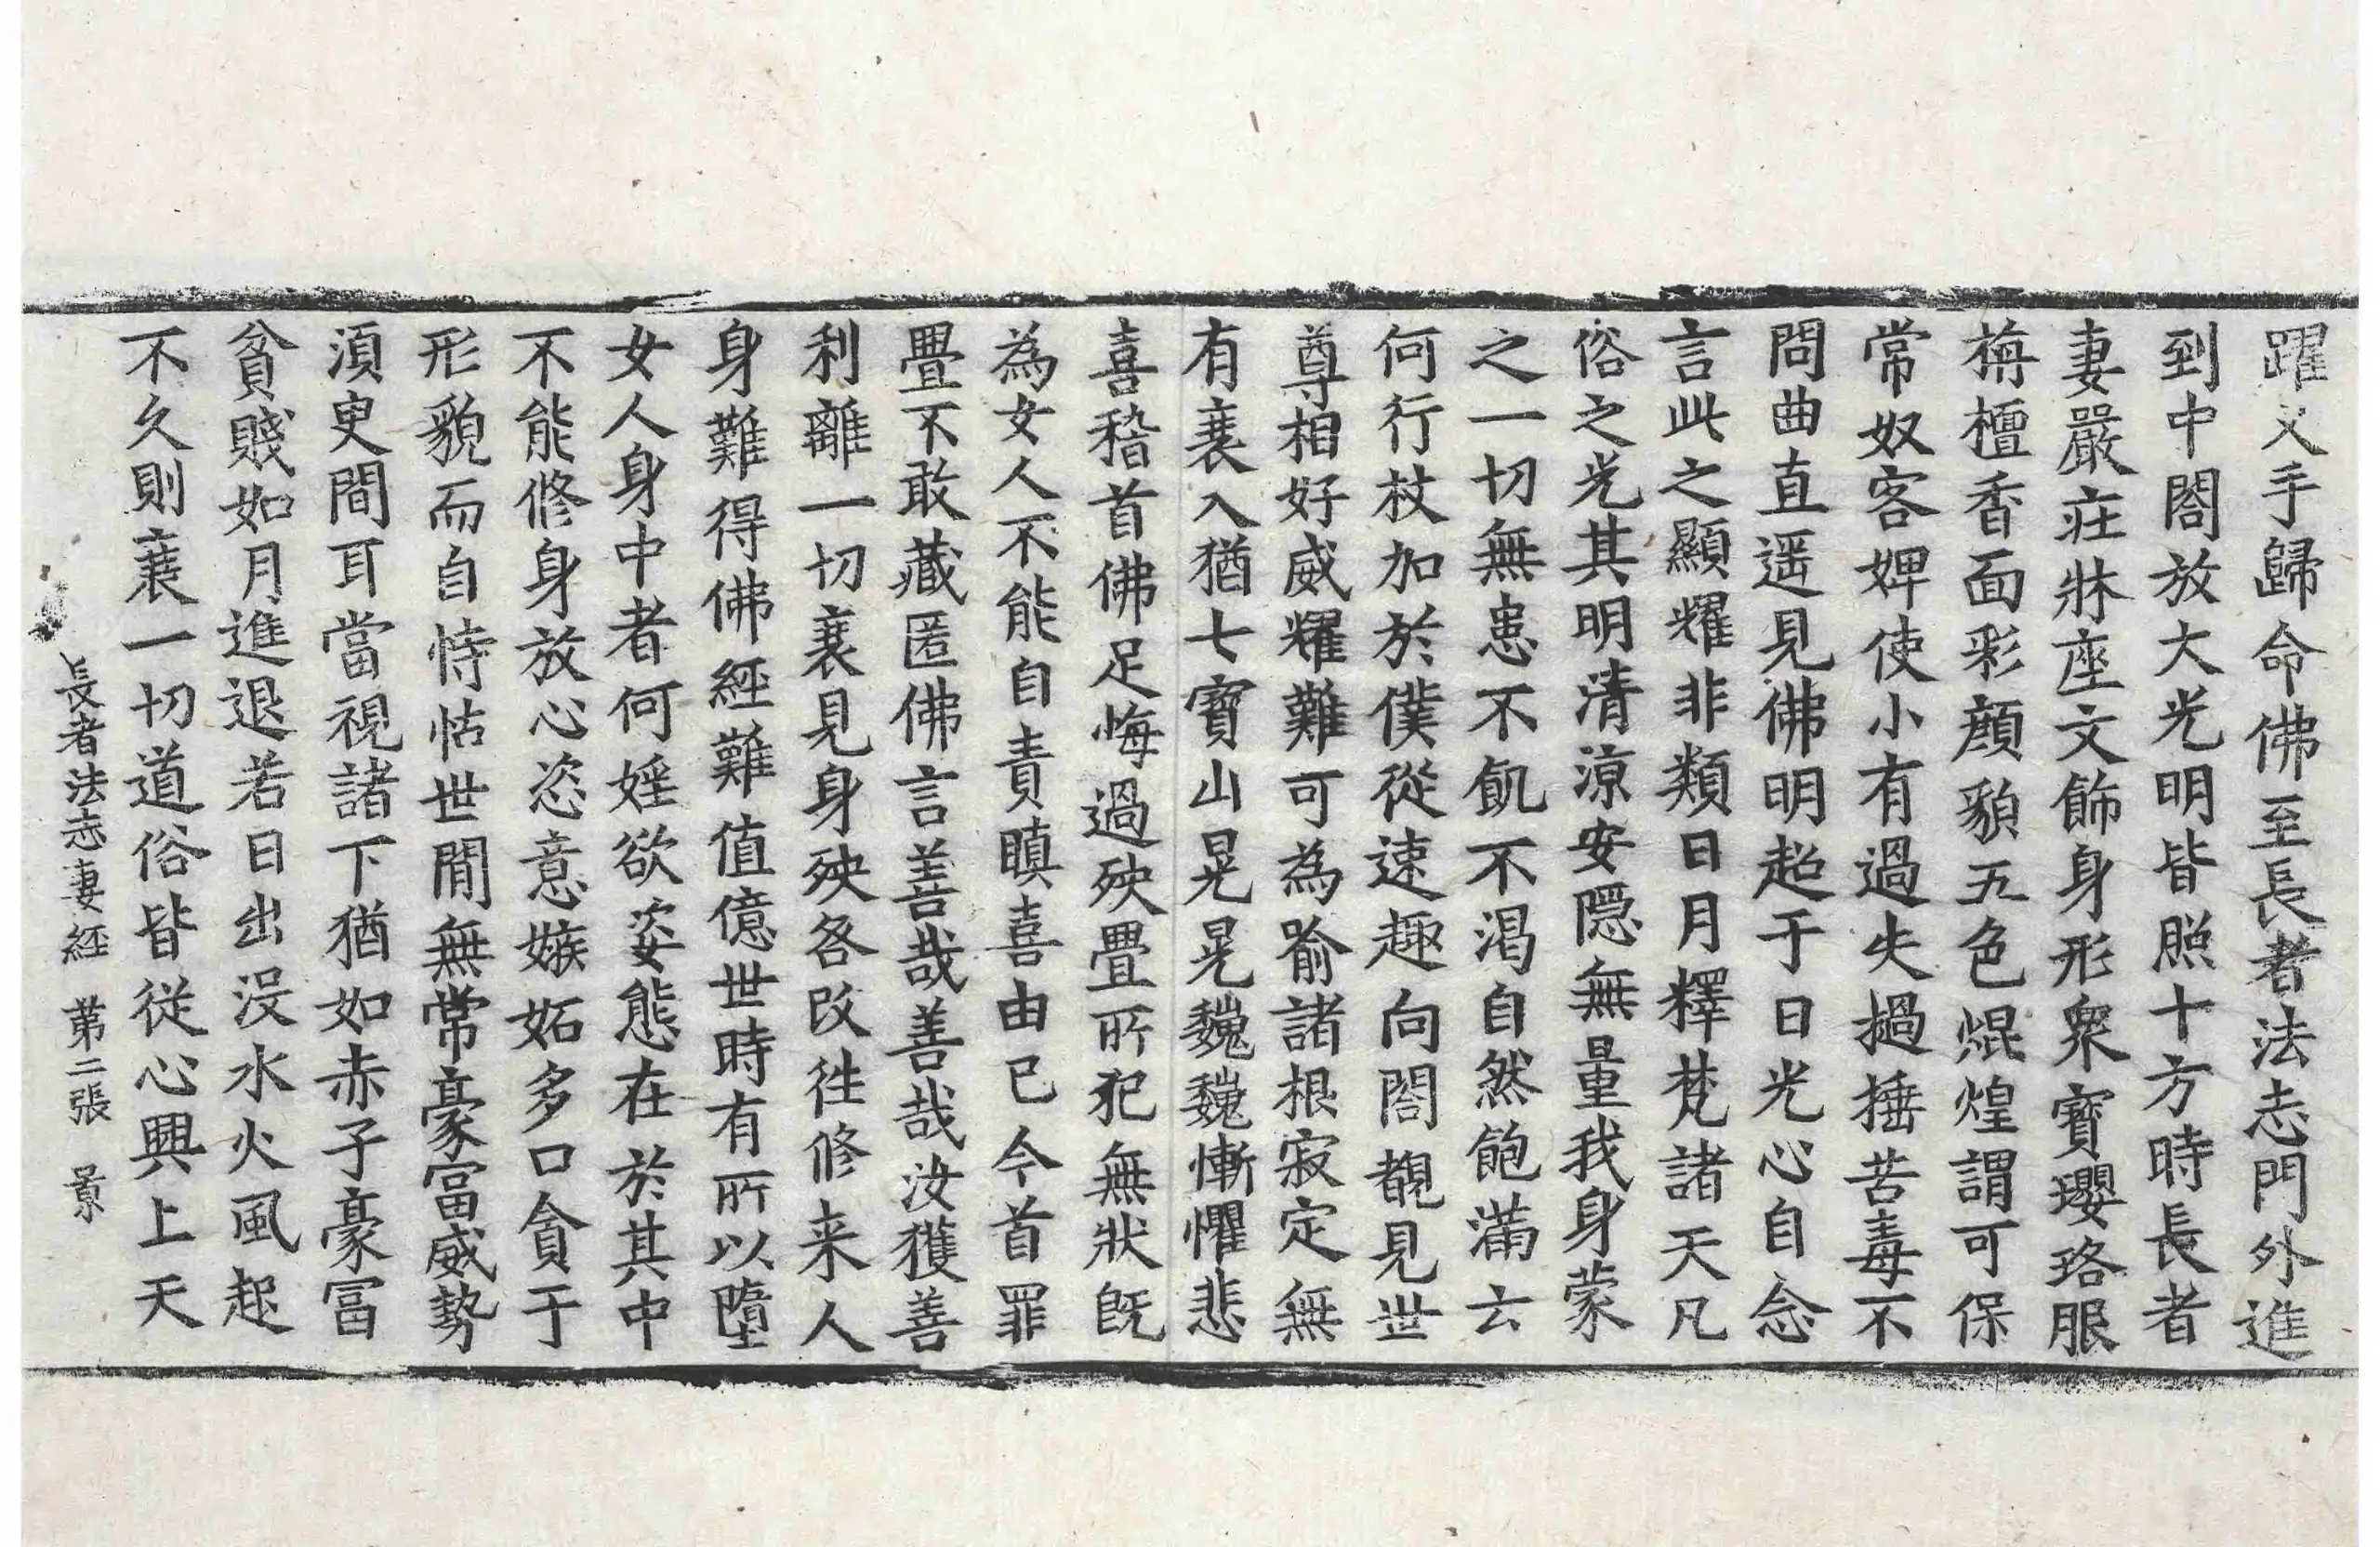 躍叉手歸命佛至長者法志門外進
到中閤放大光明皆照十方時長者
妻嚴莊牀座文飾身形衆寶瓔珞服
栴檀香面彩顏貌五色焜煌謂可保
常奴客婢使小有過失撾捶苦毒不
問曲直遥見佛明超于日光心自念
言此之顯耀非類日月釋梵諸天凡
俗之光其明清涼安隱無量我身蒙
之一切無患不飢不渴自然飽滿云
何行杖加於僕從速趣向閤覩見世
尊相好威耀難可為喻諸根寂定無
有衰入猶七寶山晃晃巍巍慚懼悲
喜稽首佛足悔過殃舋所犯無狀旣
為女人不能自責瞋喜由已今首罪
舋不敢藏匿佛言善哉善哉汝獲善
利離一切衰見身殃咎改徃修来人
身難得佛經難值億世時有所以墮
女人身中者何婬欲姿態在於其中
不能修身放心恣意嫉妬多口貪于
形貌而自恃怙世間無常豪富威勢
湏臾間耳當視諸下猶如赤子豪冨
貧賤如月進退若日出沒水火風起
不久則衰一切道俗皆從心興上天
長者法志妻經　第二張　景